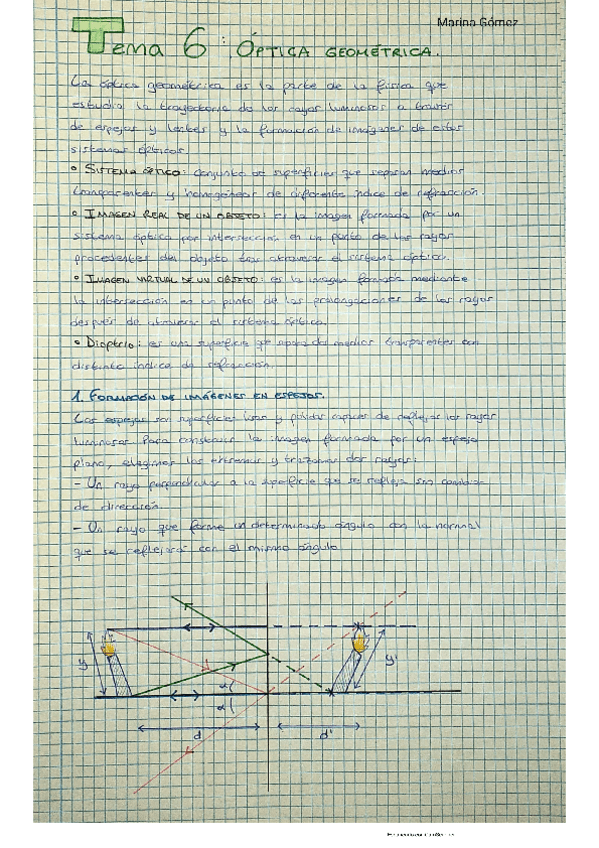 Marina Gómez
Tema 6: ÓPTICA GEOMÉTRICA.
La óptica geométrica es la parte de la física que
estudia la trayectoria de los rayos luminosos a través
de espejos y lentes y la formación de imágenes de estos
sistemas ópticos.
• SISTEMA ÓPTICO: conjunto de superficies que separan medios
transparentes y homogéneos de diferente índice de refracción.
• IMAGEN REAL DE UN OBJETO: es la imagen formada por un
sistema óptico por intersección en un punto de los rayos
procedentes del objeto tras atravesar el sistema óptico.
• IMAGEN VIRTUAL DE UN OBJETO: es la imagen formada mediante
la intersección en un punto de las prolongaciones de los rayos
después de atravesar el sistema óptico.
• Dioptrio: es una superficie que separa dos medios transparentes con
distinto índice de refracción.
1. FORMACIÓN DE IMÁGENES EN ESPEJOS.
Los espejos son superficies lisas y pulidas capaces de reflejar los rayos
luminosos. Para construir la imagen formada por un espejo
plano, elegimos los extremos y trazamos dos rayos:
- Un rayo perpendicular a la superficie que se refleja sin cambiar
de dirección.
- Un rayo que forme un determinado ángulo con la normal
que se reflejará con el mismo ángulo
y
y'
α
α
d
d'